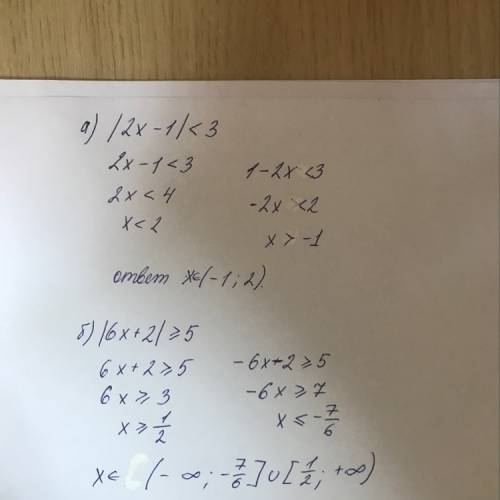 а) |2x-1|<3
2x-1<3
2x<4
x<2
1-2x<3
-2x<2
x>-1
ответ x∈(-1;2).
б) |6x+2|≥5
6x+2≥5
6x≥3
x≥1/2
-6x-2≥5
-6x≥7
x≤-7/6
x∈ (-∞;-7/6]∪[1/2;+∞)